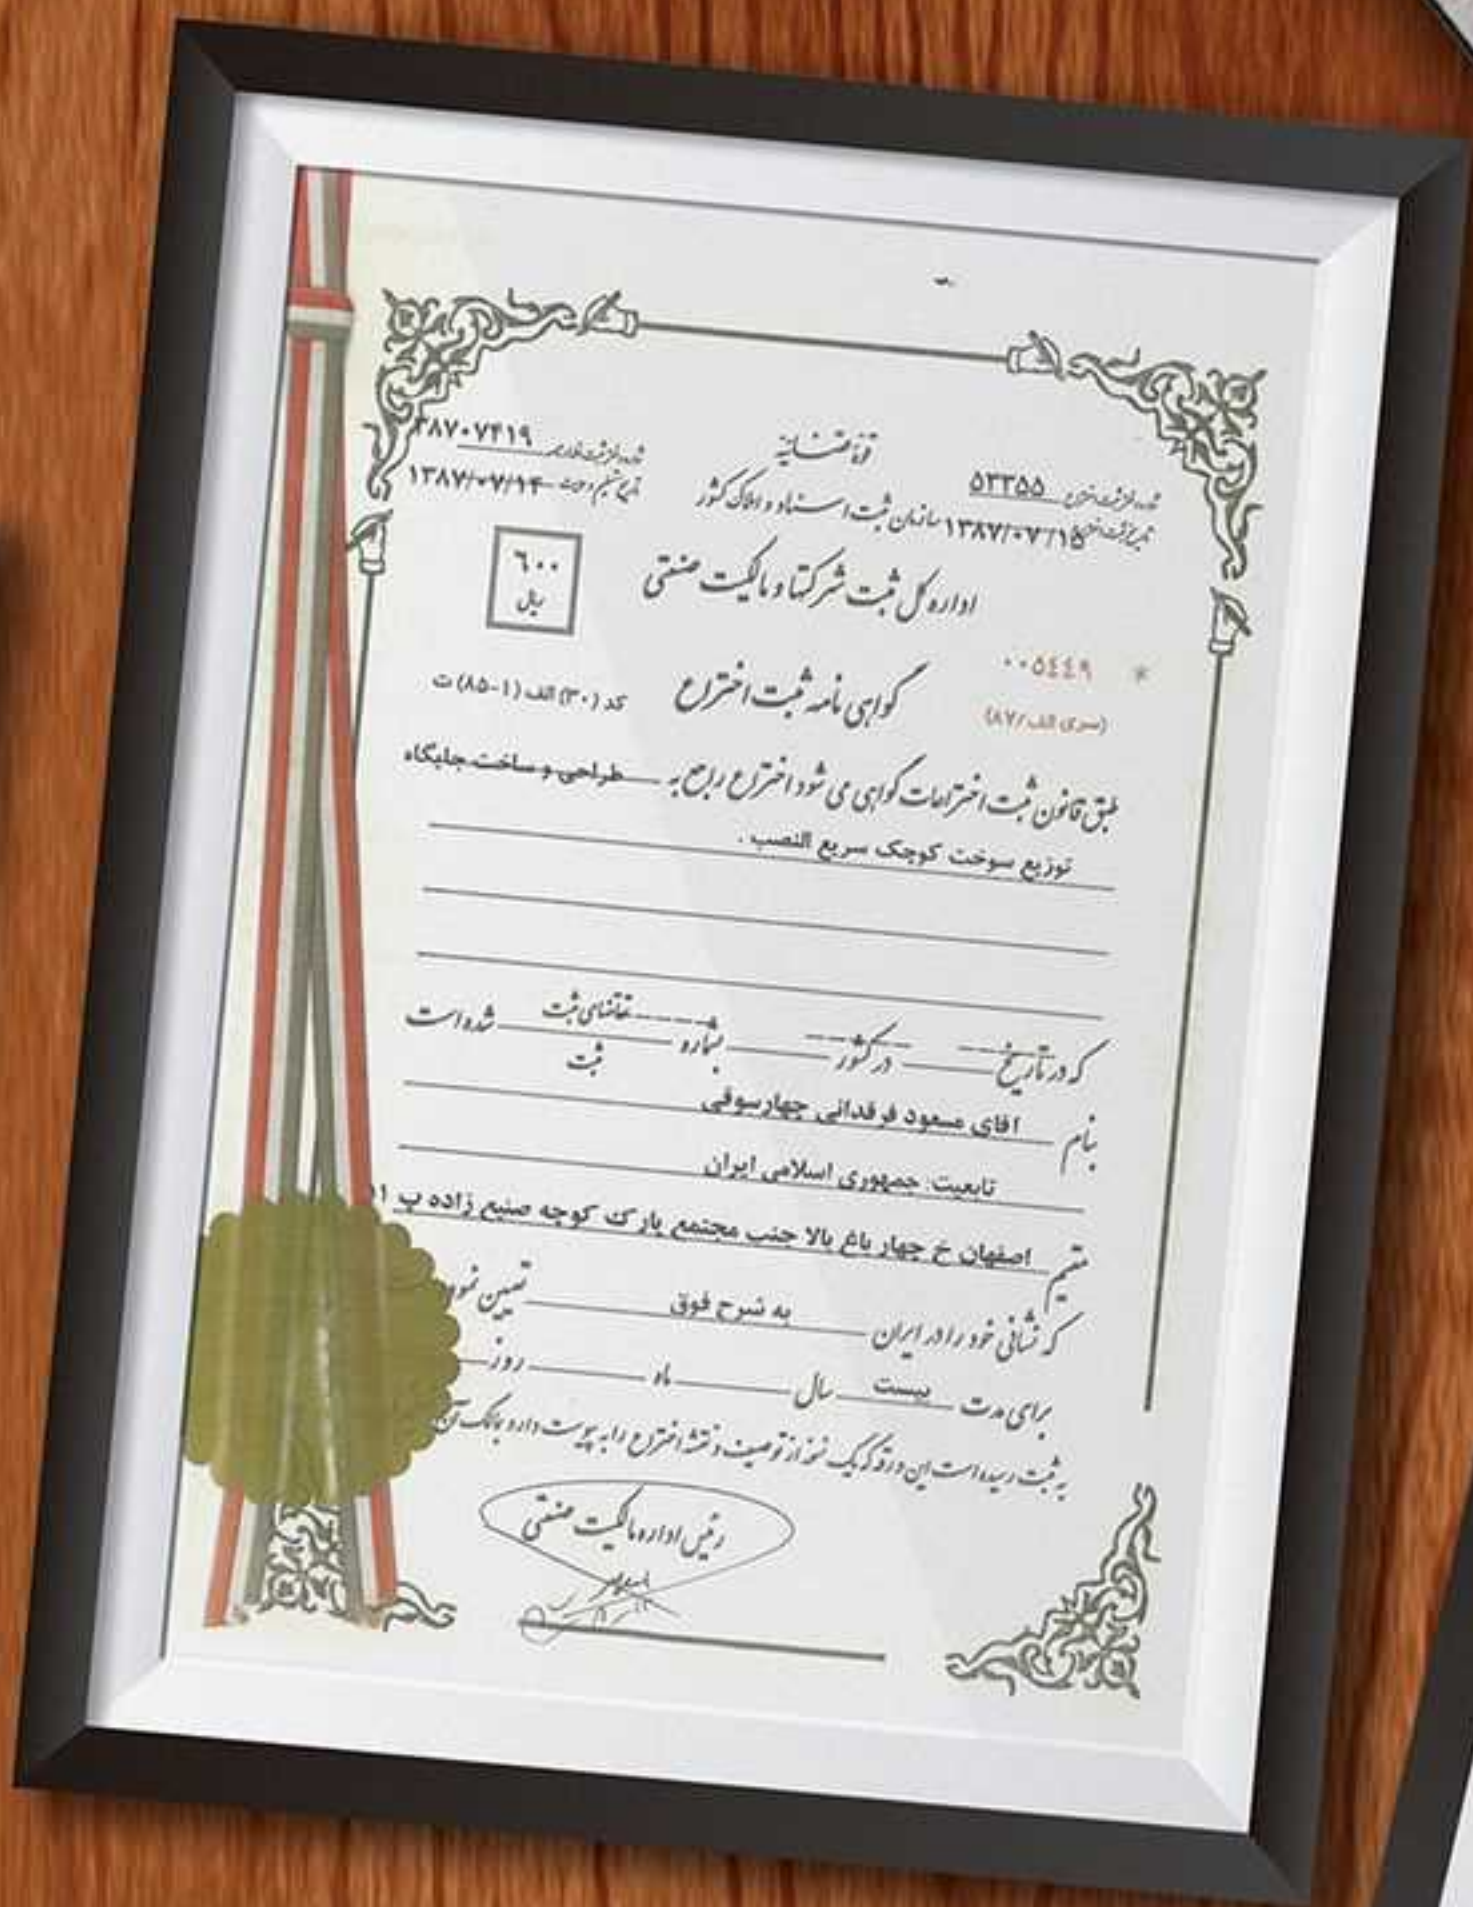 قوه قضائیه
شماره و تاریخ ثبت اختراع ۵۳۳۵۵
تاریخ ثبت اختراع ۱۳۸۷/۰۷/۱۵
سازمان ثبت اسناد و املاک کشور
شماره ثبت اظهارنامه ۳۸۷۰۷۴۱۹
تاریخ تسلیم ۱۳۸۷/۰۷/۱۴
اداره کل ثبت شرکتها و مالکیت صنعتی
۶۰۰
ریال
* ۰۰۵۴۴۹
(سری الف/۸۷)
گواهی نامه ثبت اختراع
کد (۳۰) الف (۱-۸۵) ت
طبق قانون ثبت اختراعات گواهی می شود اختراع راجع به طراحی و ساخت جلیگاه
توزیع سوخت کوچک سریع النصب .
که در تاریخ ---- در کشور ---- بشماره ---- تقاضای ثبت شده است
ثبت
بنام اقای مسعود فرقدانی چهارسوقی
تابعیت: جمهوری اسلامی ایران
مقیم اصفهان خ چهار باغ بالا جنب مجتمع پارک کوچه صنیع زاده پ ۱۱
که نشانی خود را در ایران به شرح فوق تعیین نموده
برای مدت بیست سال ماه روز
به ثبت رسیده است این ورقه که یک نسخه از توصیف و نقشه اختراع را به پیوست دارد بمالک آن
رئیس اداره مالکیت صنعتی